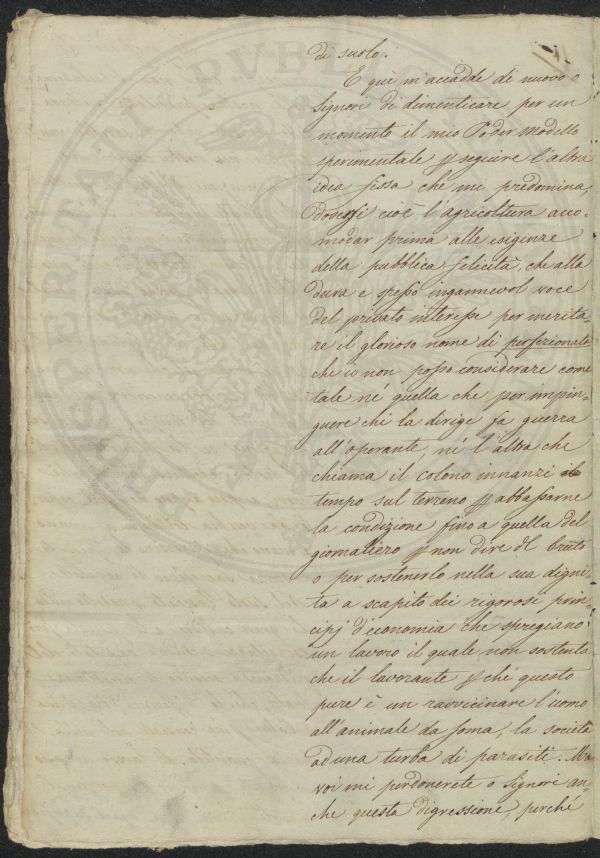 di suolo.
E quì m'accadde di nuovo o
Signori di dimenticare per un
momento il mio Poder Modello
sperimentale p seguire l'altra
idea fissa che mi predomina,
doversi cioè l'agricoltura acco-
modar prima alle esigenze
della pubblica felicità, che alla
dura e spesso ingannevol voce
del privato interesse per merita-
re il glorioso nome di perfezionata
che io non posso considerare come
tale né quella che per impin-
guere chi la dirige fa guerra
all'operante, né l'altra che
chiama il colono innanzi
tempo sul terreno p abbassarne
la condizione fino a quella del
giornaliero p non dire del bruto
o per sostenerlo nella sua digni-
tà a scapito dei rigorosi prin-
cipj d'economia che spregiano
un lavoro il quale non sostenta
che il lavorante pché questo
pure è un ravvicinare l'uomo
all'animale da soma, la società
ad una turba di parasiti. Ma
voi mi perdonerete o Signori an-
che questa digressione, perché